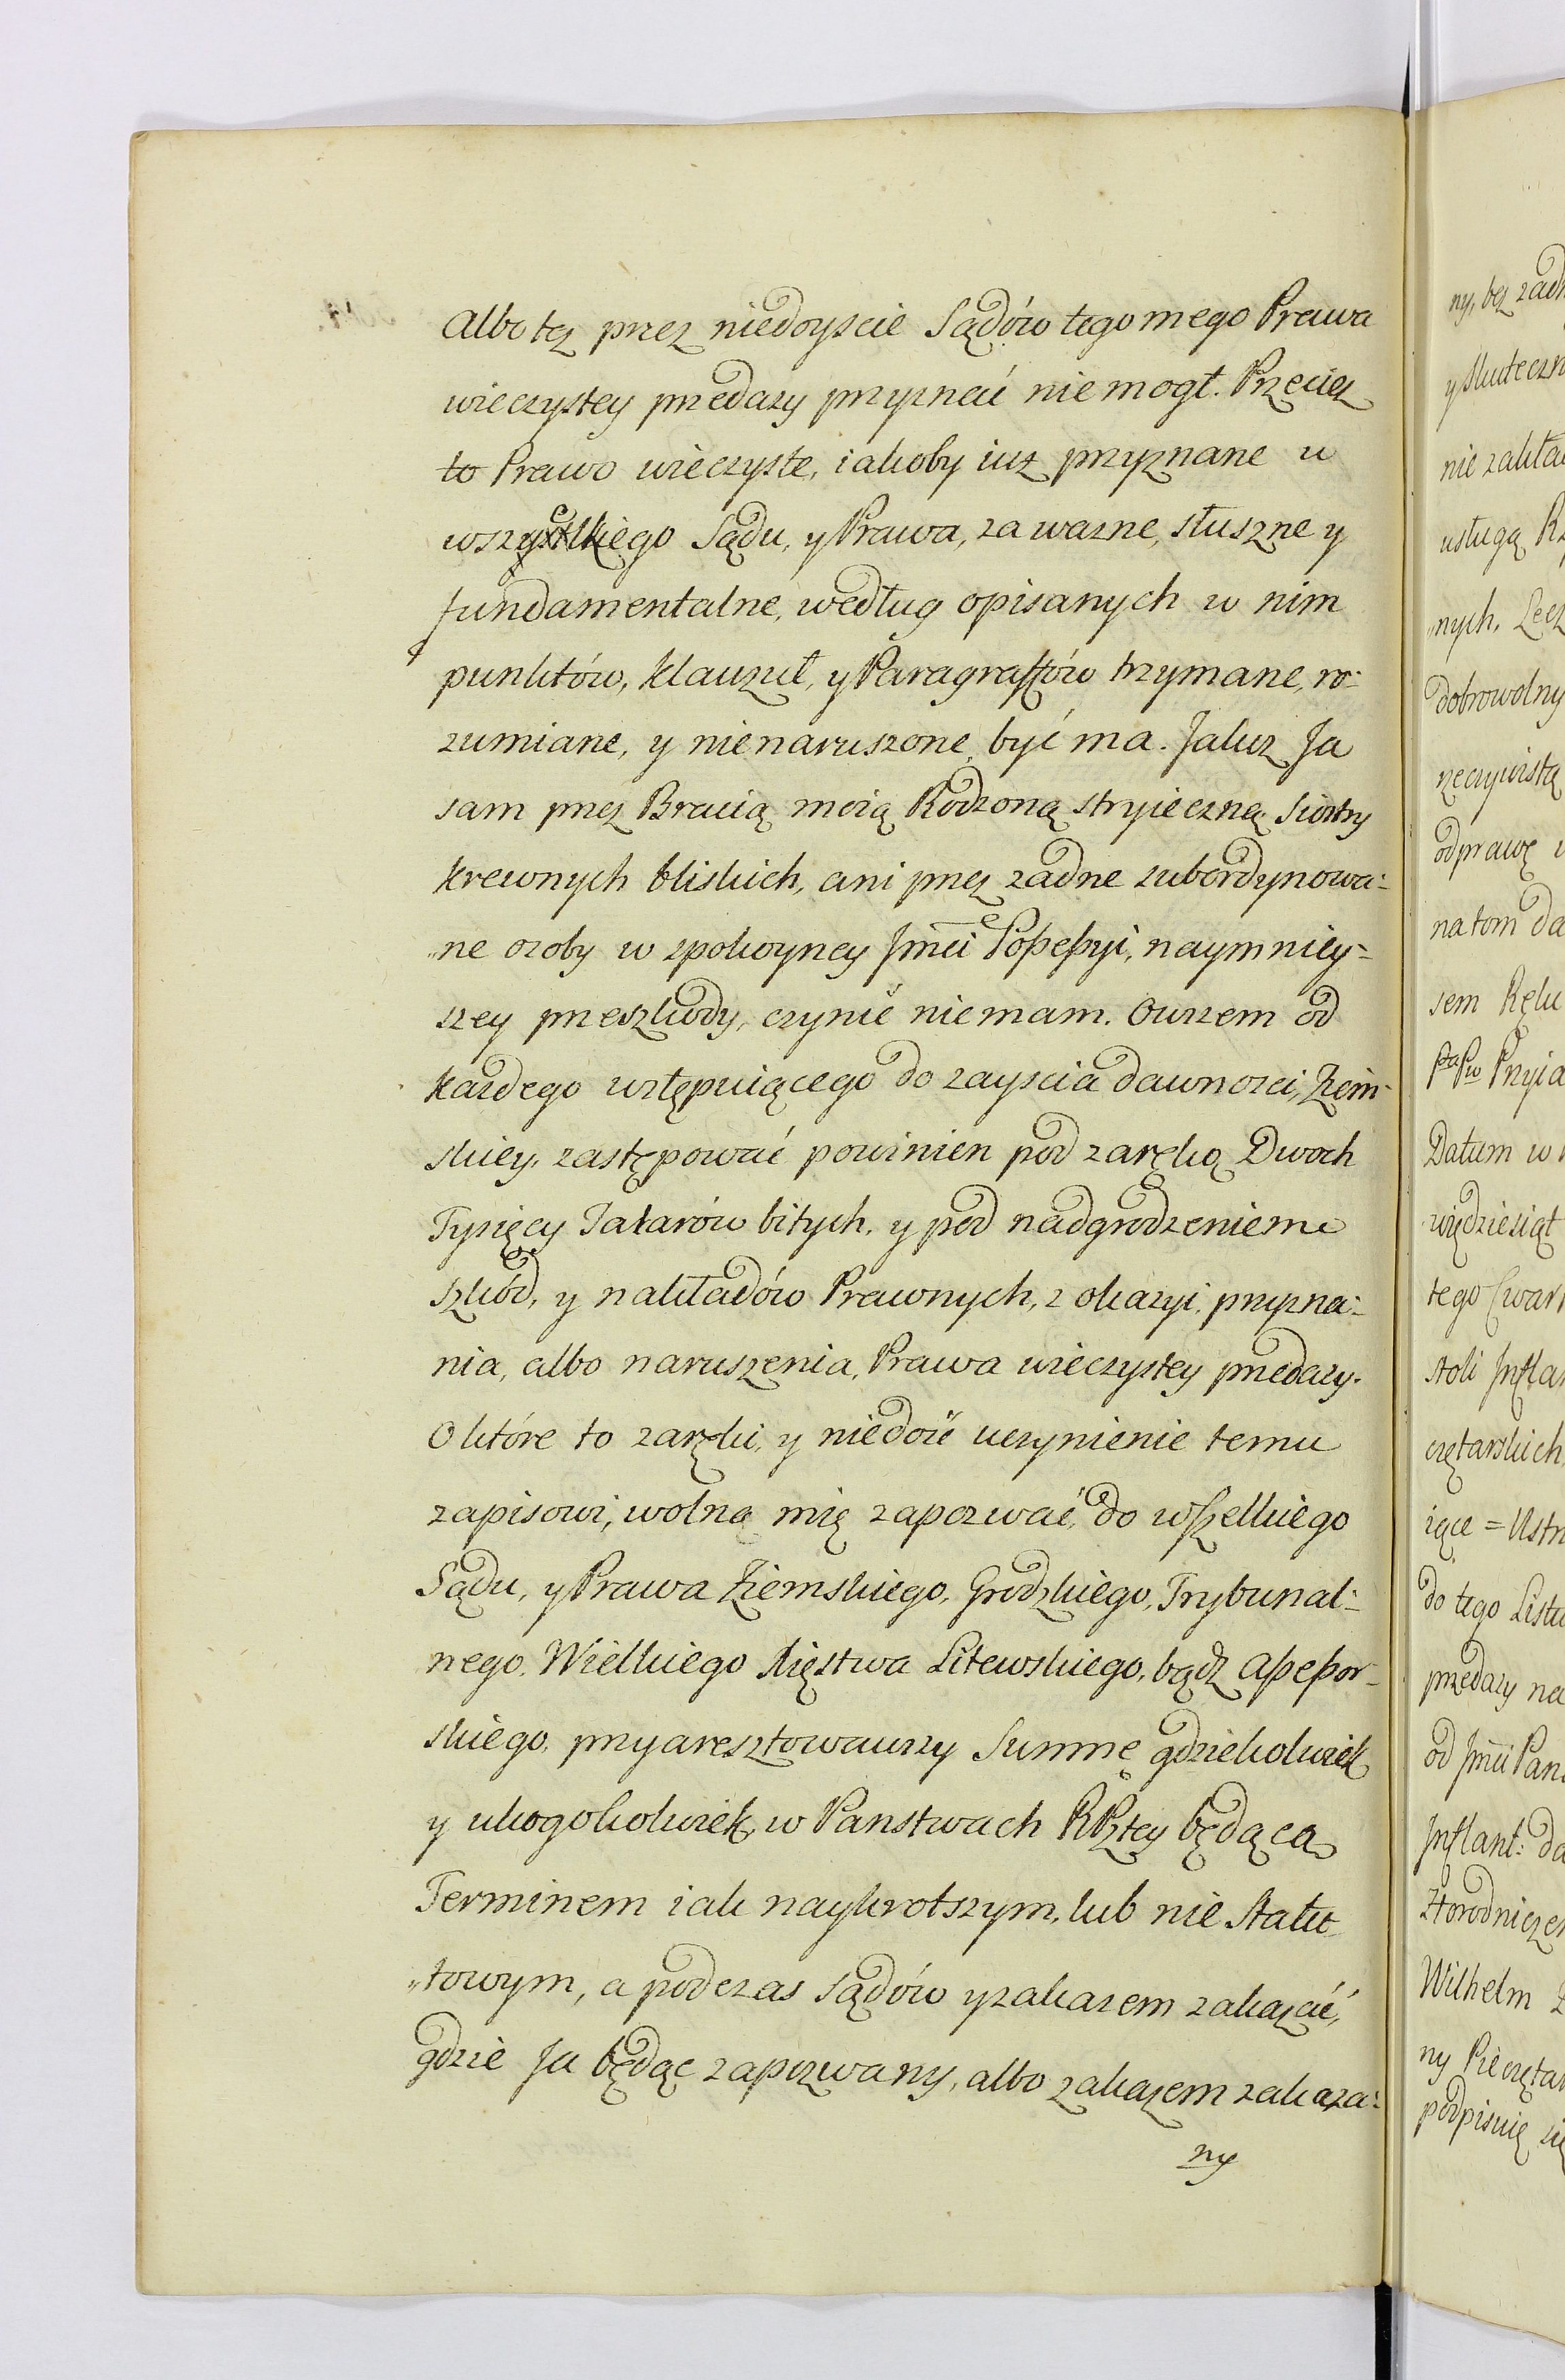 Albo tez przez niedoyscie Sądów tego mego Prawa
wieczystey przedazy przyznać nie mogł. Przeciez
to Prawo wieczyste, iakoby iuz przyznane u
wszelkiego Sądu, y Prawa, za wazne, słuszne y
fundamentalne, według opisanych w nim
punktów, klauzuł, y Paragraffów trzymane, ro:
zumiane, y nienaruszone, być ma. Jakoz Ja
sam przez Bracią moią Rodzoną stryieczną Siostry
krewnych bliskich, ani przez zadne subordynowa:
„ne osoby w spokoyney Jmci Possessyi, naymniey:
szey przeszkody, czynić nie mam. Owszem od
kazdego wstępuiącego do zayscia dawnosci, Ziem:
skiey, zastępować powinien pod zaręką Dwoch
Tysięcy Talarów bitych, y pod nadgrodzeniem
szkód, y nakładów Prawnych, z okazyi, przyzna:
nia, albo naruszenia, Prawa wieczystey przedazy.
O które to zaręki, y niedość uczynienie temu
zapisowi, wolno mię zapozwać, do wszelkiego
Sądu, y Prawa Ziemskiego, Grodzkiego, Trybunal:
nego, Wielkiego Xięstwa Litewskiego, bądz Assessor:
skiego, przyaresztowawszy Summę gdziekolwiek
y ukogokolwiek w Panstwach RPltey będącą
Terminem iak naykrotszym, lub nie Statu:
„towym, a podczas sądów y zakazem zakazać,
gdzie Ja będąc zapozwany, albo zakazem zakaza:
ny
ny, bez zadn
y skuteczn
nie zakła
usługą Rz
„nych, Lecz
dobrowolny
rzeczywistą
odprawę
na tom da
sem Ręku
Przyia
Datum w
więdziesiąt
tego Czwart
stoli Jnflan
czętarskich
iące = Ustn
do tego Listu
przedazy na
od Jmci Pan
Jnflant: da
Horodniczen
Wilhelm
ny Pieczętar
podpisuię się